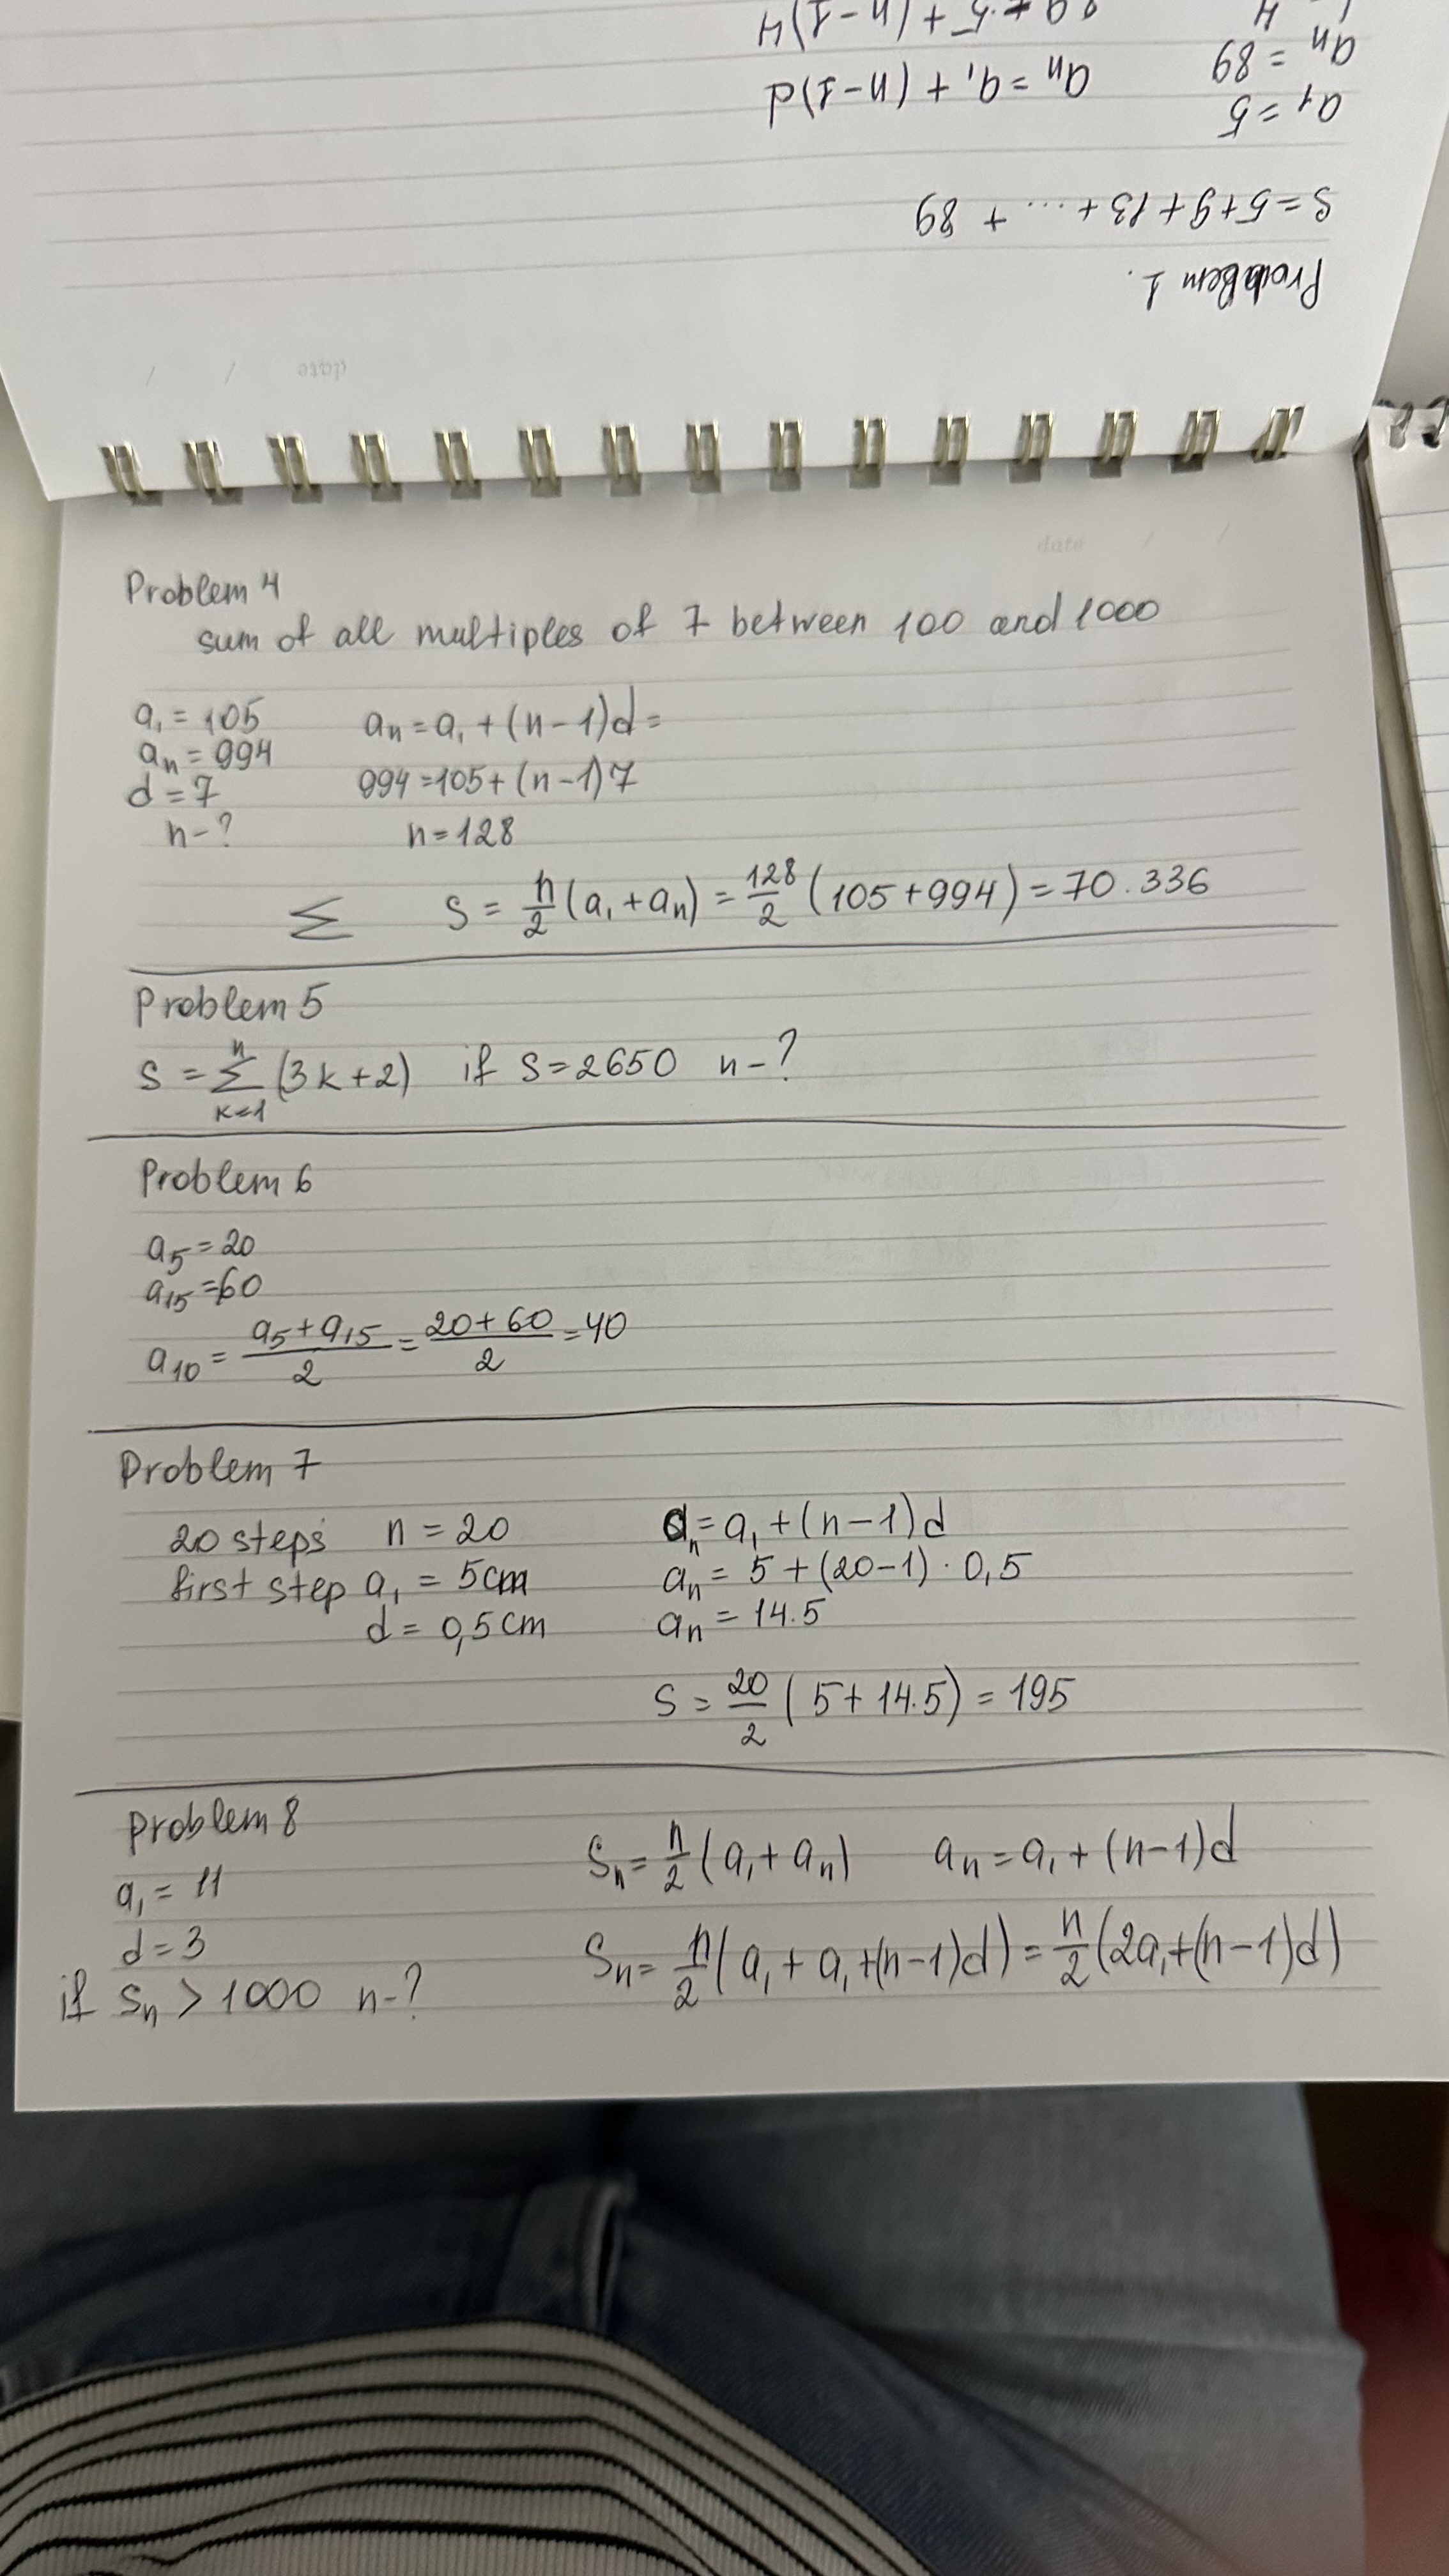 Problem 1.
S = 5+9+13+ ... + 89
a₁ = 5
aₙ = 89 aₙ = a₁ + (n-1)d
5 + (n-1)4
date / /
date / /
Problem 4
sum of all multiples of 7 between 100 and 1000
a₁ = 105 aₙ = a₁ + (n-1)d =
aₙ = 994
d = 7 994 = 105 + (n-1)7
n - ? n = 128
Σ S = n/2 (a₁ + aₙ) = 128/2 (105 + 994) = 70.336
Problem 5
S = Σ_{k=1}^{n} (3k+2) if S = 2650 n - ?
Problem 6
a₅ = 20
a₁₅ = 60
a₁₀ = (a₅ + a₁₅)/2 = (20+60)/2 = 40
Problem 7
20 steps n = 20 aₙ = a₁ + (n-1)d
first step a₁ = 5cm aₙ = 5 + (20-1) · 0,5
d = 0,5cm aₙ = 14.5
S = 20/2 (5 + 14.5) = 195
Problem 8
a₁ = 11 Sₙ = n/2 (a₁ + aₙ) aₙ = a₁ + (n-1)d
d = 3 Sₙ = n/2 (a₁ + a₁ + (n-1)d) = n/2 (2a₁ + (n-1)d)
if Sₙ > 1000 n - ?